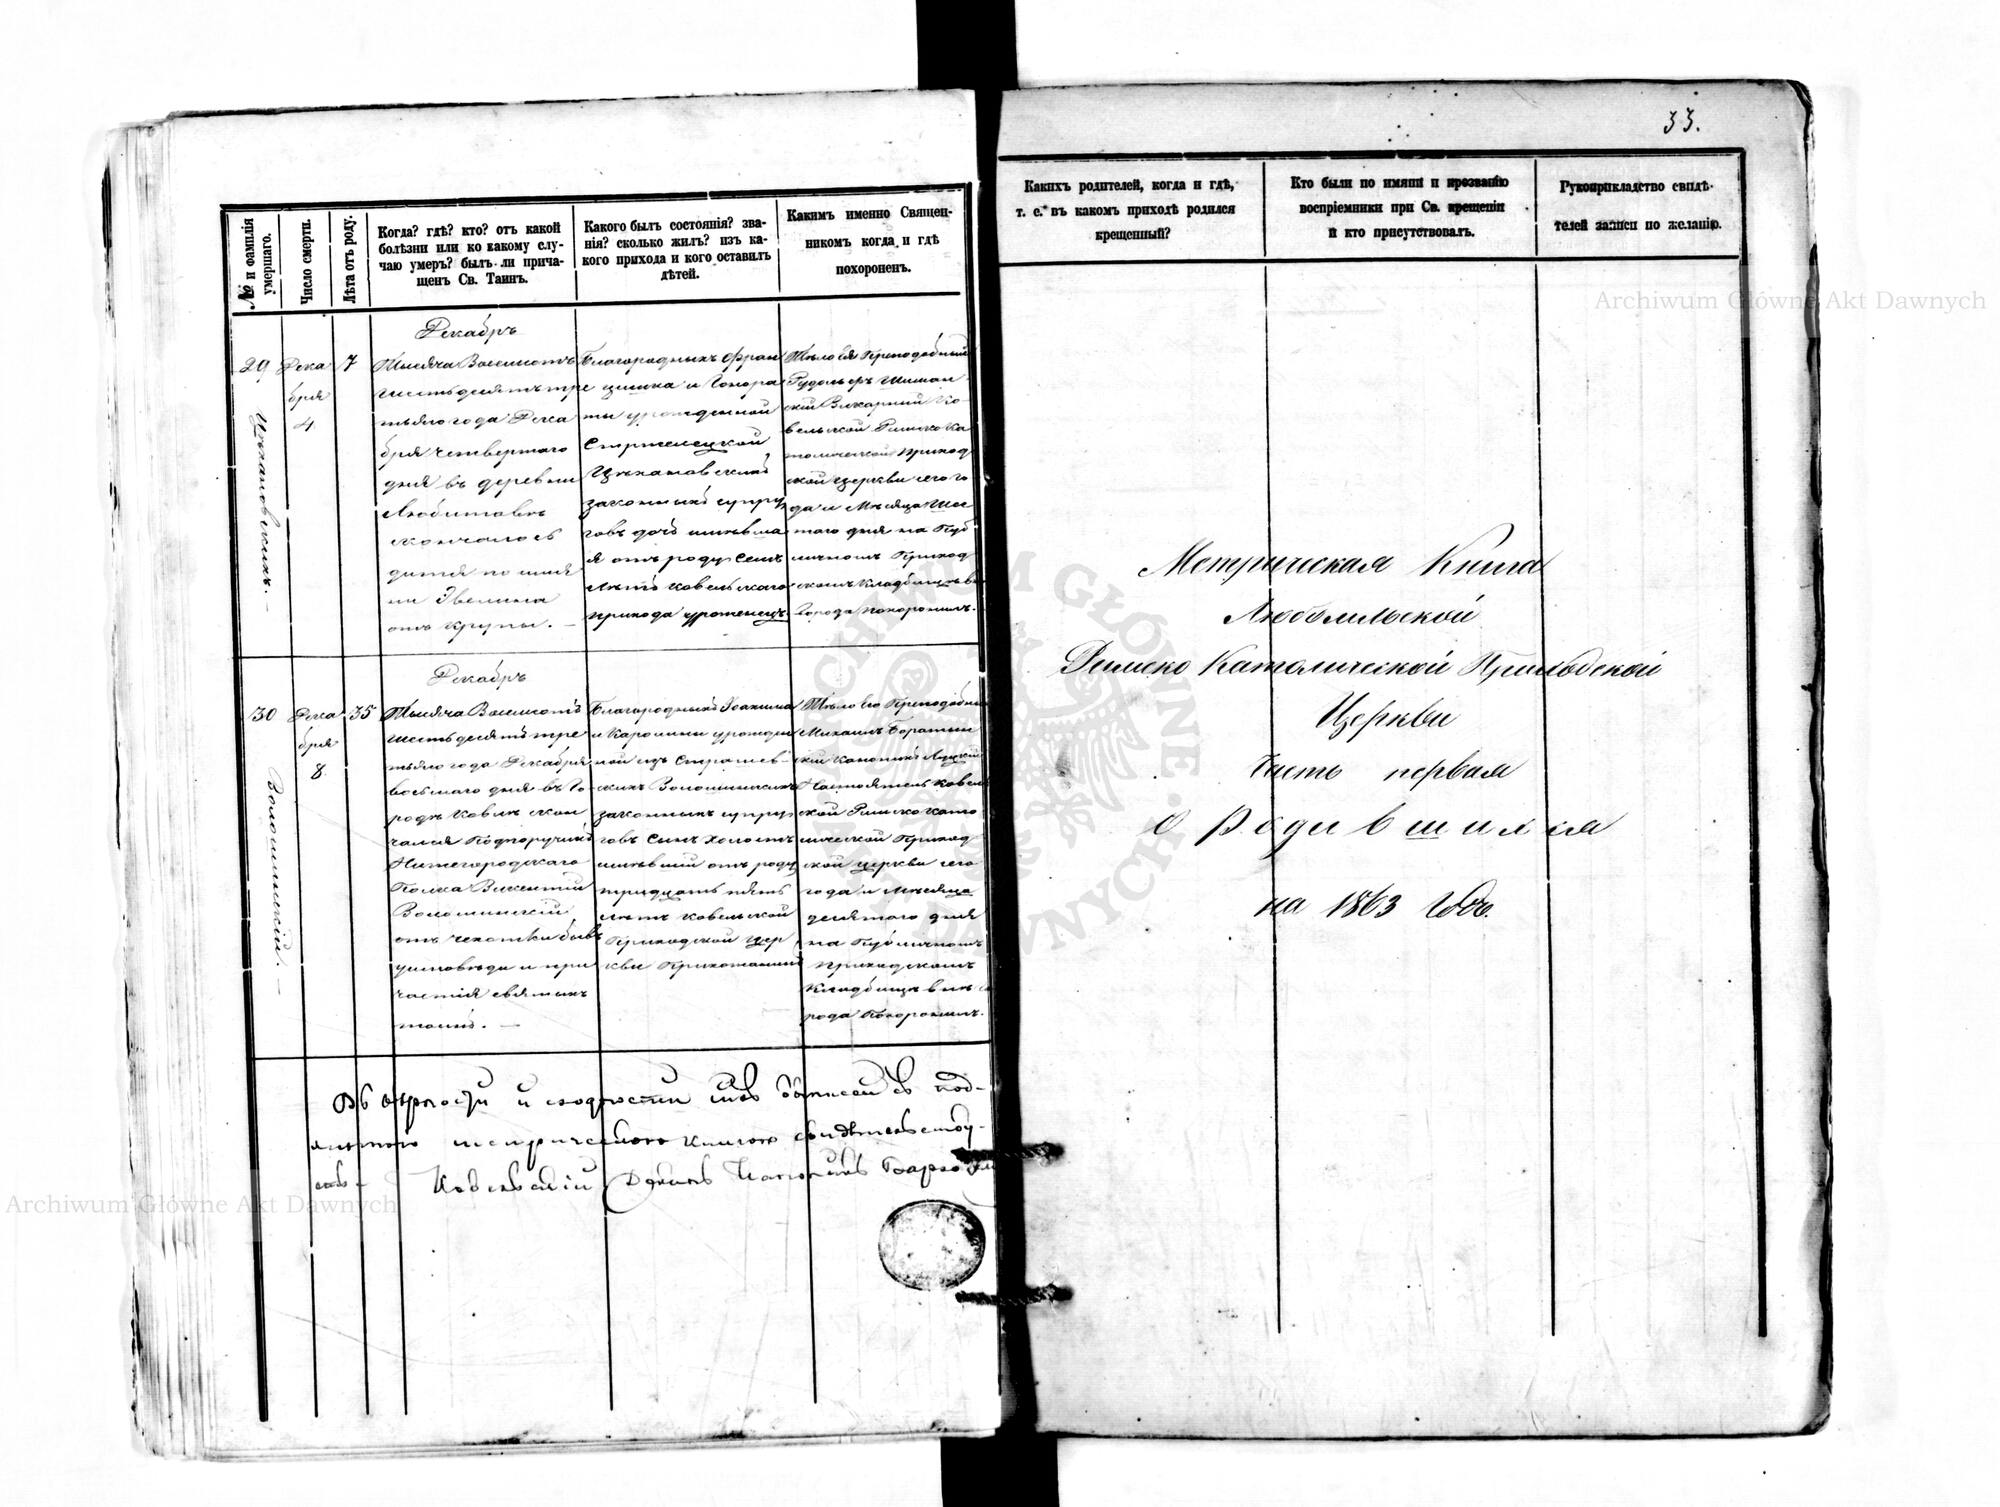 № и фамилія умершаго.
Число смерти.
Лѣта отъ роду.
Когда? гдѣ? кто? отъ какой
болѣзни или ко какому слу-
чаю умеръ? былъ ли прича-
щенъ Св. Таинъ.
Какого былъ состоянія? зва-
нія? сколько жилъ? изъ ка-
кого прихода и кого оставилъ
дѣтей.
Какимъ именно Священ-
никомъ когда и гдѣ
похороненъ.
29
Дека
бря
4
7
Декабрь
Тысяча Восемсотъ
шестьдесятъ тре
тьяго года Дека
бря четвертаго
дня въ деревни
Любитовъ
скончалось
дитя по име
ни Эвелина
отъ крупы. —
Благородныхъ Фран
цишка и Гонора
ты урожденной
Стржелецкой
Цѣхановскихъ
законныхъ супру
говъ дочь имѣвша
я отъ роду семь
лѣтъ Ковельскаго
прихода уроженецъ.
Тѣло Ея Преподобный
Рудольфъ Шиман
скій Викарний Ко-
вельской Римско Ка
толической Приход
ской церкви сего го
да и Мѣсяца Шес
таго дня на Пуб
личномъ Приход
скомъ Кладбищѣ
города похоронилъ.
30
Дека
бря
8
35
Волошинскій. —
Декабрь
Тысяча Восемсотъ
шестьдесятъ тре
тьяго года Декабря
восьмаго дня въ Го-
родѣ Ковлѣ скон
чался Подпоручикъ
Нижегородскаго
Полка Викентій
Волошинскій
отъ чехотки бывъ
исповѣди и при
частія святыхъ
таинъ. —
Благородныхъ Іоахима
и Каролини урожден
ной изъ Сташев-
скихъ Волошинскихъ
законныхъ супру
говъ Сынъ Холостъ
имѣвшій отъ роду
тридцать пять
лѣтъ Ковельской
Приходской Цер
кви Прихожанинъ
Тѣло Его Преподобный
Михаилъ
скій Каноникъ Луцкій
Настоятель Ковель
ской Римско Като
лической Приход
ской церкви сего
года и Мѣсяца
десятаго дня
на Публичномъ
Приходскомъ
Кладбищѣ
рода Похоронилъ.
Въ вѣрности и сходности съ под-
метрическою книгою свидѣтельству-
Ковельскій Деканъ Каноникъ
33.
Какихъ родителей, когда и гдѣ,
т. е. въ какомъ приходѣ родился
крещенный?
Кто были по имяни и прозванію
воспріемники при Св. крещеніи
и кто присутствовалъ.
Рукоприкладство свидѣ-
телей записи по желанію.
Метрическая Книга
Любомльской
Римско Католической Приходской
Церкви
Часть первая
о Родившихся
на 1863 Годъ.
Archiwum Główne Akt Dawnych
Archiwum Główne Akt Dawnych
ARCHIWUM GŁÓWNE AKT DAWNYCH